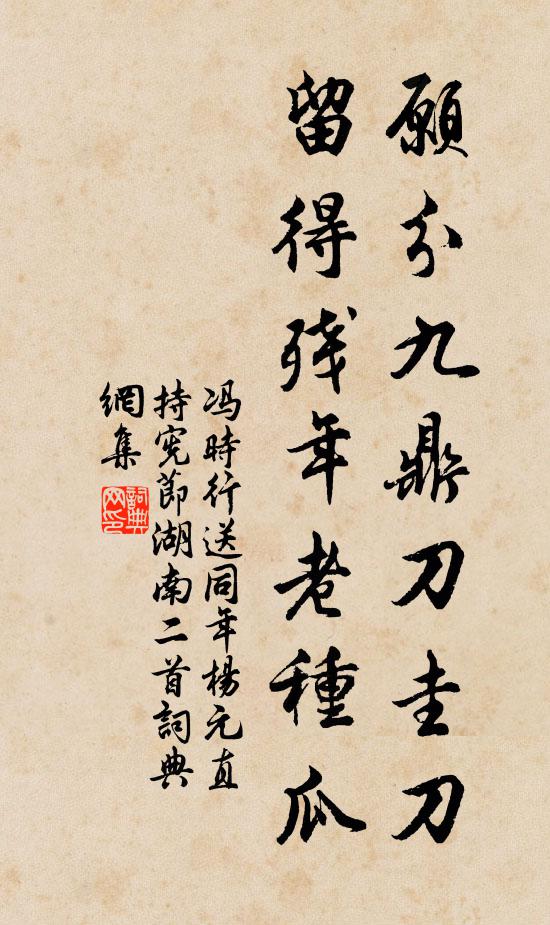 願分九鼎刀圭刀
留得残年老種瓜
冯時行送同年楊元直
持宪節湖南二首詞典
網集
詞典
网印